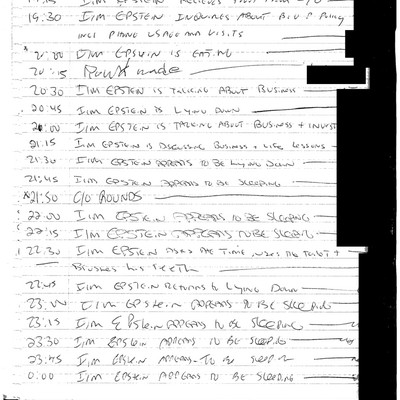 19:30 I/M EPSTEIN INQUIRES ABOUT
INCL PHONE USAGE AND VISITS
20:00 I/M EPSTEIN IS EATING
20:15 ROUNDS MADE
20:30 I/M EPSTEIN IS TALKING ABOUT BUSINESS
20:45 I/M EPSTEIN IS LYING DOWN
I/M EPSTEIN IS TALKING ABOUT BUSINESS + INVEST
21:15 I/M EPSTEIN IS DISCUSSING BUSINESS + LIFE LESSONS
21:30 I/M EPSTEIN APPEARS TO BE LYING DOWN
21:45 I/M EPSTEIN APPEARS TO BE SLEEPING
*21:50 C/O ROUNDS
22:00 I/M EPSTEIN APPEARS TO BE SLEEPING
22:15 I/M EPSTEIN APPEARS TO BE SLEEPING
22:30 I/M EPSTEIN ASKS THE TIME USES THE TOILET +
BRUSHES HIS TEETH
22:45 I/M EPSTEIN RETURNS TO LYING DOWN
23:00 I/M EPSTEIN APPEARS TO BE SLEEPING
23:15 I/M EPSTEIN APPEARS TO BE SLEEPING
23:30 I/M EPSTEIN APPEARS TO BE SLEEPING
23:45 I/M EPSTEIN APPEARS TO BE SLEEPING
0:00 I/M EPSTEIN APPEARS TO BE SLEEPING